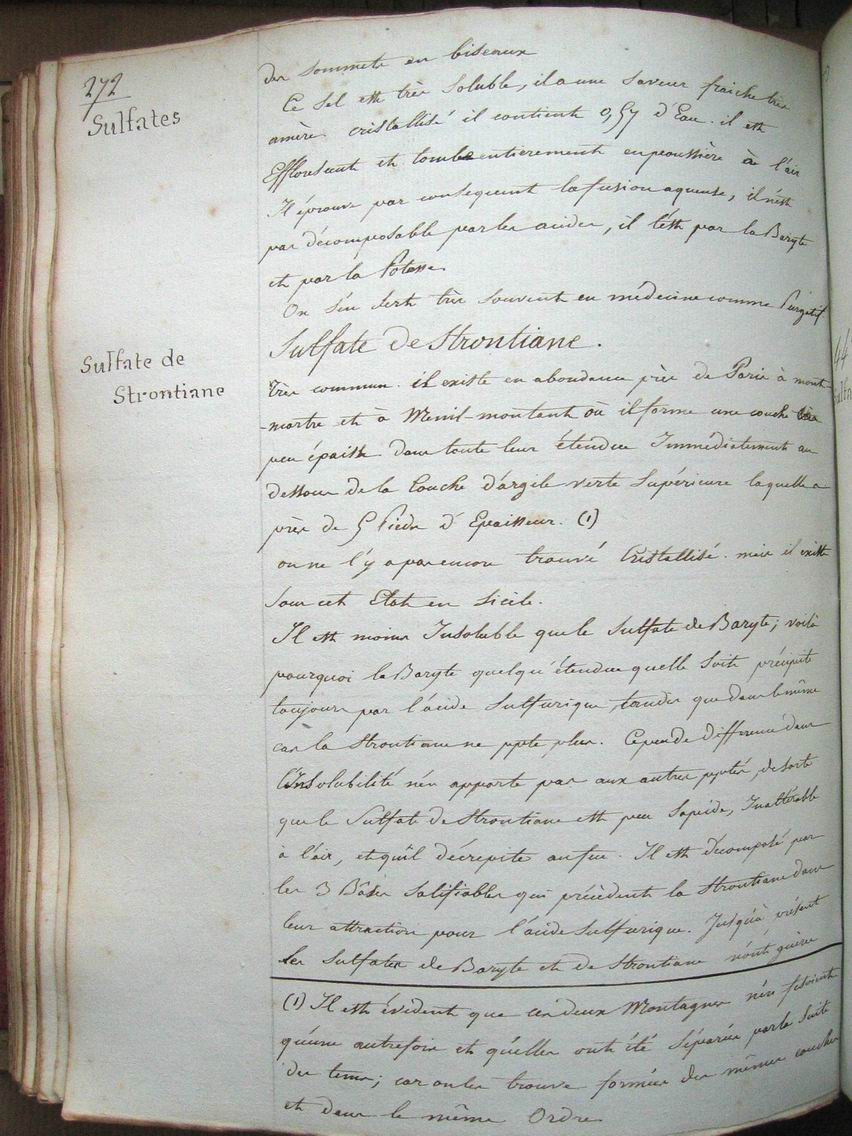 272
Sulfates
des sommets en biseaux
Ce sel est très soluble, il a une saveur fraiche très
amère cristallisé il contient 0,57 d'Eau. il est
Efflorescent et tombe entierement en poussière à l'air
Il éprouve par consequent la fusion aqueuse, il n'est
pas décomposable par les acides, il l'est par la Baryte
et par la Potasse.
On s'en sert très souvent en médecine comme Purgatif.
Sulfate de Strontiane.
Sulfate de
Strontiane
très commun. il existe en abondance près de Paris à mont
-martre et à Menil-montant où il forme une couche
peu épaisse dans toute leur étendue Immédiatement au
dessous de la Couche d'argile verte Supérieure laquelle a
près de 5 Pieds d'Epaisseur. (1)
on ne l'y a pas encore trouvé Cristallisé. mais il existe
sous cet Etat en Sicile.
Il est moins Insoluble que le Sulfate de Baryte; voilà
pourquoi la Baryte quelqu'étendue quelle Soit précipite
toujours par l'acide Sulfurique, tandis que dans le même
cas la Strontiane ne ppte plus. Ce peu de différence dans
l'Insolubilité n'en apporte pas aux autres pptés, de sorte
que le Sulfate de Strontiane est peu Sapide, Inaltérable
à l'air, et qu'il décrepite au feu. Il est décomposé par
les 3 Bases Salifiables qui précèdent la Strontiane dans
leur attraction pour l'acide Sulfurique. Jusqu'à présent
les Sulfates de Baryte et de Strontiane n'ont guère
(1) Il est évident que ces deux Montagnes n'en fesoient
qu'une autrefois et qu'elles ont été Séparées par la Suite
des tems; car on les trouve formées des mêmes couches
et dans le même Ordre